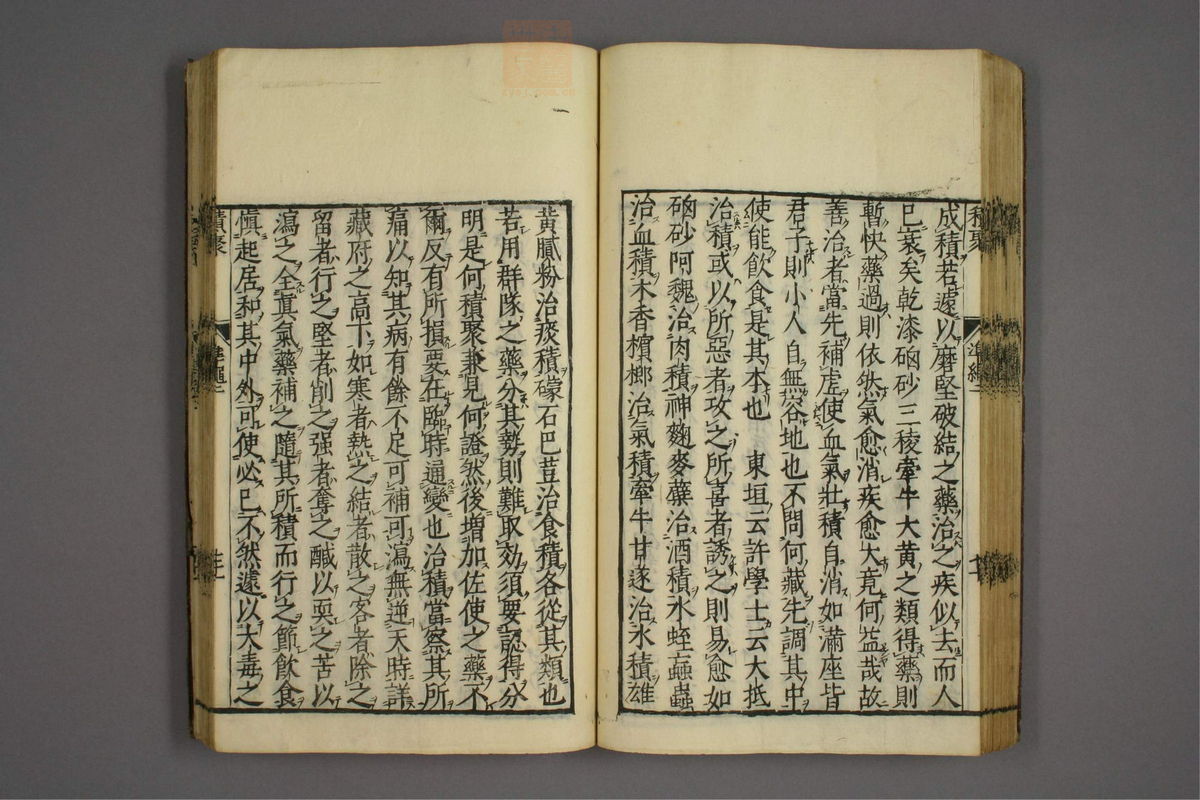 成積若遽以磨堅破結之藥治之疾似去而人
已衰矣乾漆硇砂三棱牽牛大黄之類得藥則
暫快藥過則依然氣愈消疾愈大竟何益哉故
善治者當先補虚使血氣壯積自消如滿座皆
君子則小人自無容地也不問何藏先調其中
使能飲食是其本也 東垣云許學士云大抵
治積或以所惡者攻之所喜者誘之則易愈如
硇砂阿魏治肉積神麴麥蘗治酒積水蛭蝱蟲
治血積木香檳榔治氣積牽牛甘遂治水積雄
黄膩粉治痰積礞石巴荳治食積各從其類也
若用群隊之藥分其勢則難取効須要認得分
明是何積聚兼見何證然後增加佐使之藥不
爾反有所損要在臨時通變也治積當察其所
痛以知其病有餘不足可補可瀉無逆天時詳
藏府之高下如寒者熱之結者散之客者除之
留者行之堅者削之强者奪之鹹以耎之苦以
瀉之全眞氣藥補之隨其所積而行之節飲食
愼起居和其中外可使必已不然遽以大毒之
積聚
準繩二